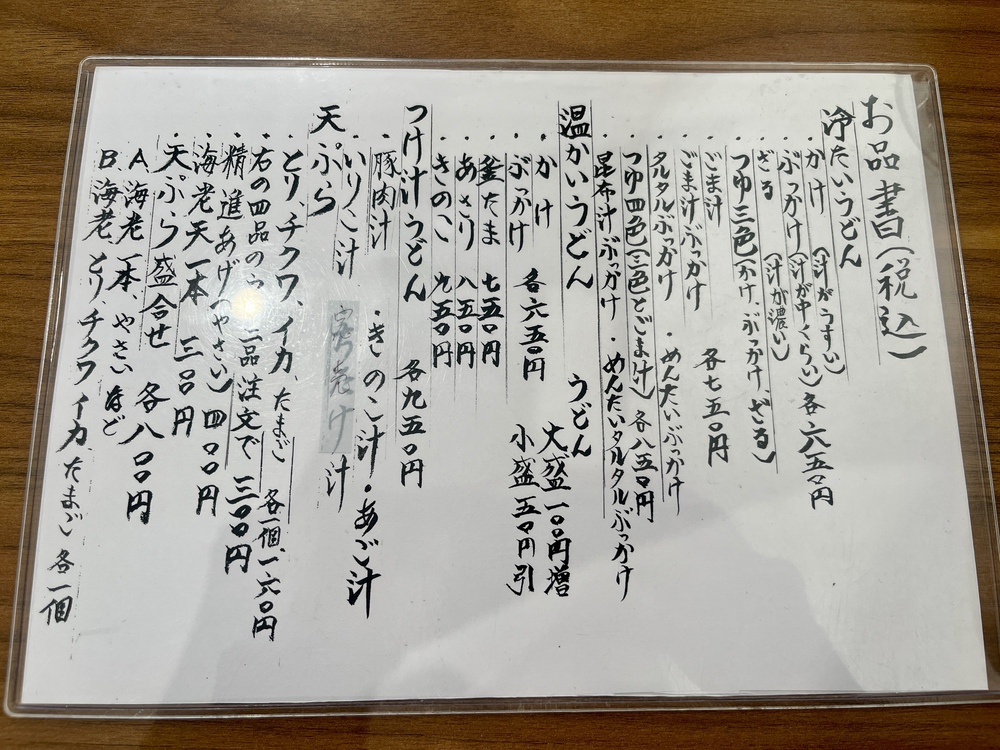 お品書(税込)
冷たいうどん
・かけ (汁がうすい)
・ぶっかけ (汁が中くらい) 各六五〇円
・ざる (汁が濃い)
・つゆ三色(かけ、ぶっかけ、ざる)
・ごま汁 各七五〇円
・ごま汁ぶっかけ
・タルタルぶっかけ ・めんたいぶっかけ
・つゆ四色(三色とごま汁) 各八五〇円
・昆布汁ぶっかけ ・めんたいタルタルぶっかけ
温かいうどん うどん
・かけ 大盛一〇〇円増
・ぶっかけ 各六五〇円 小盛五〇円引
・釜たま 七五〇円
・あさり 八五〇円
・きのこ 九五〇円
つけ汁うどん 各九五〇円
・豚肉汁 ・きのこ汁 ・あご汁
・いりこ汁 汁
天ぷら
・とり、チクワ、イカ、たまご 各一個、一六〇円
・右の四品のうち二品注文で 三〇〇円
・精進あげ(やさい) 四〇〇円
・海老天一本 三〇〇円
・天ぷら盛合せ 各八〇〇円
A、海老一本、やさいなど
B、海老、とり、チクワ、イカ、たまご 各一個